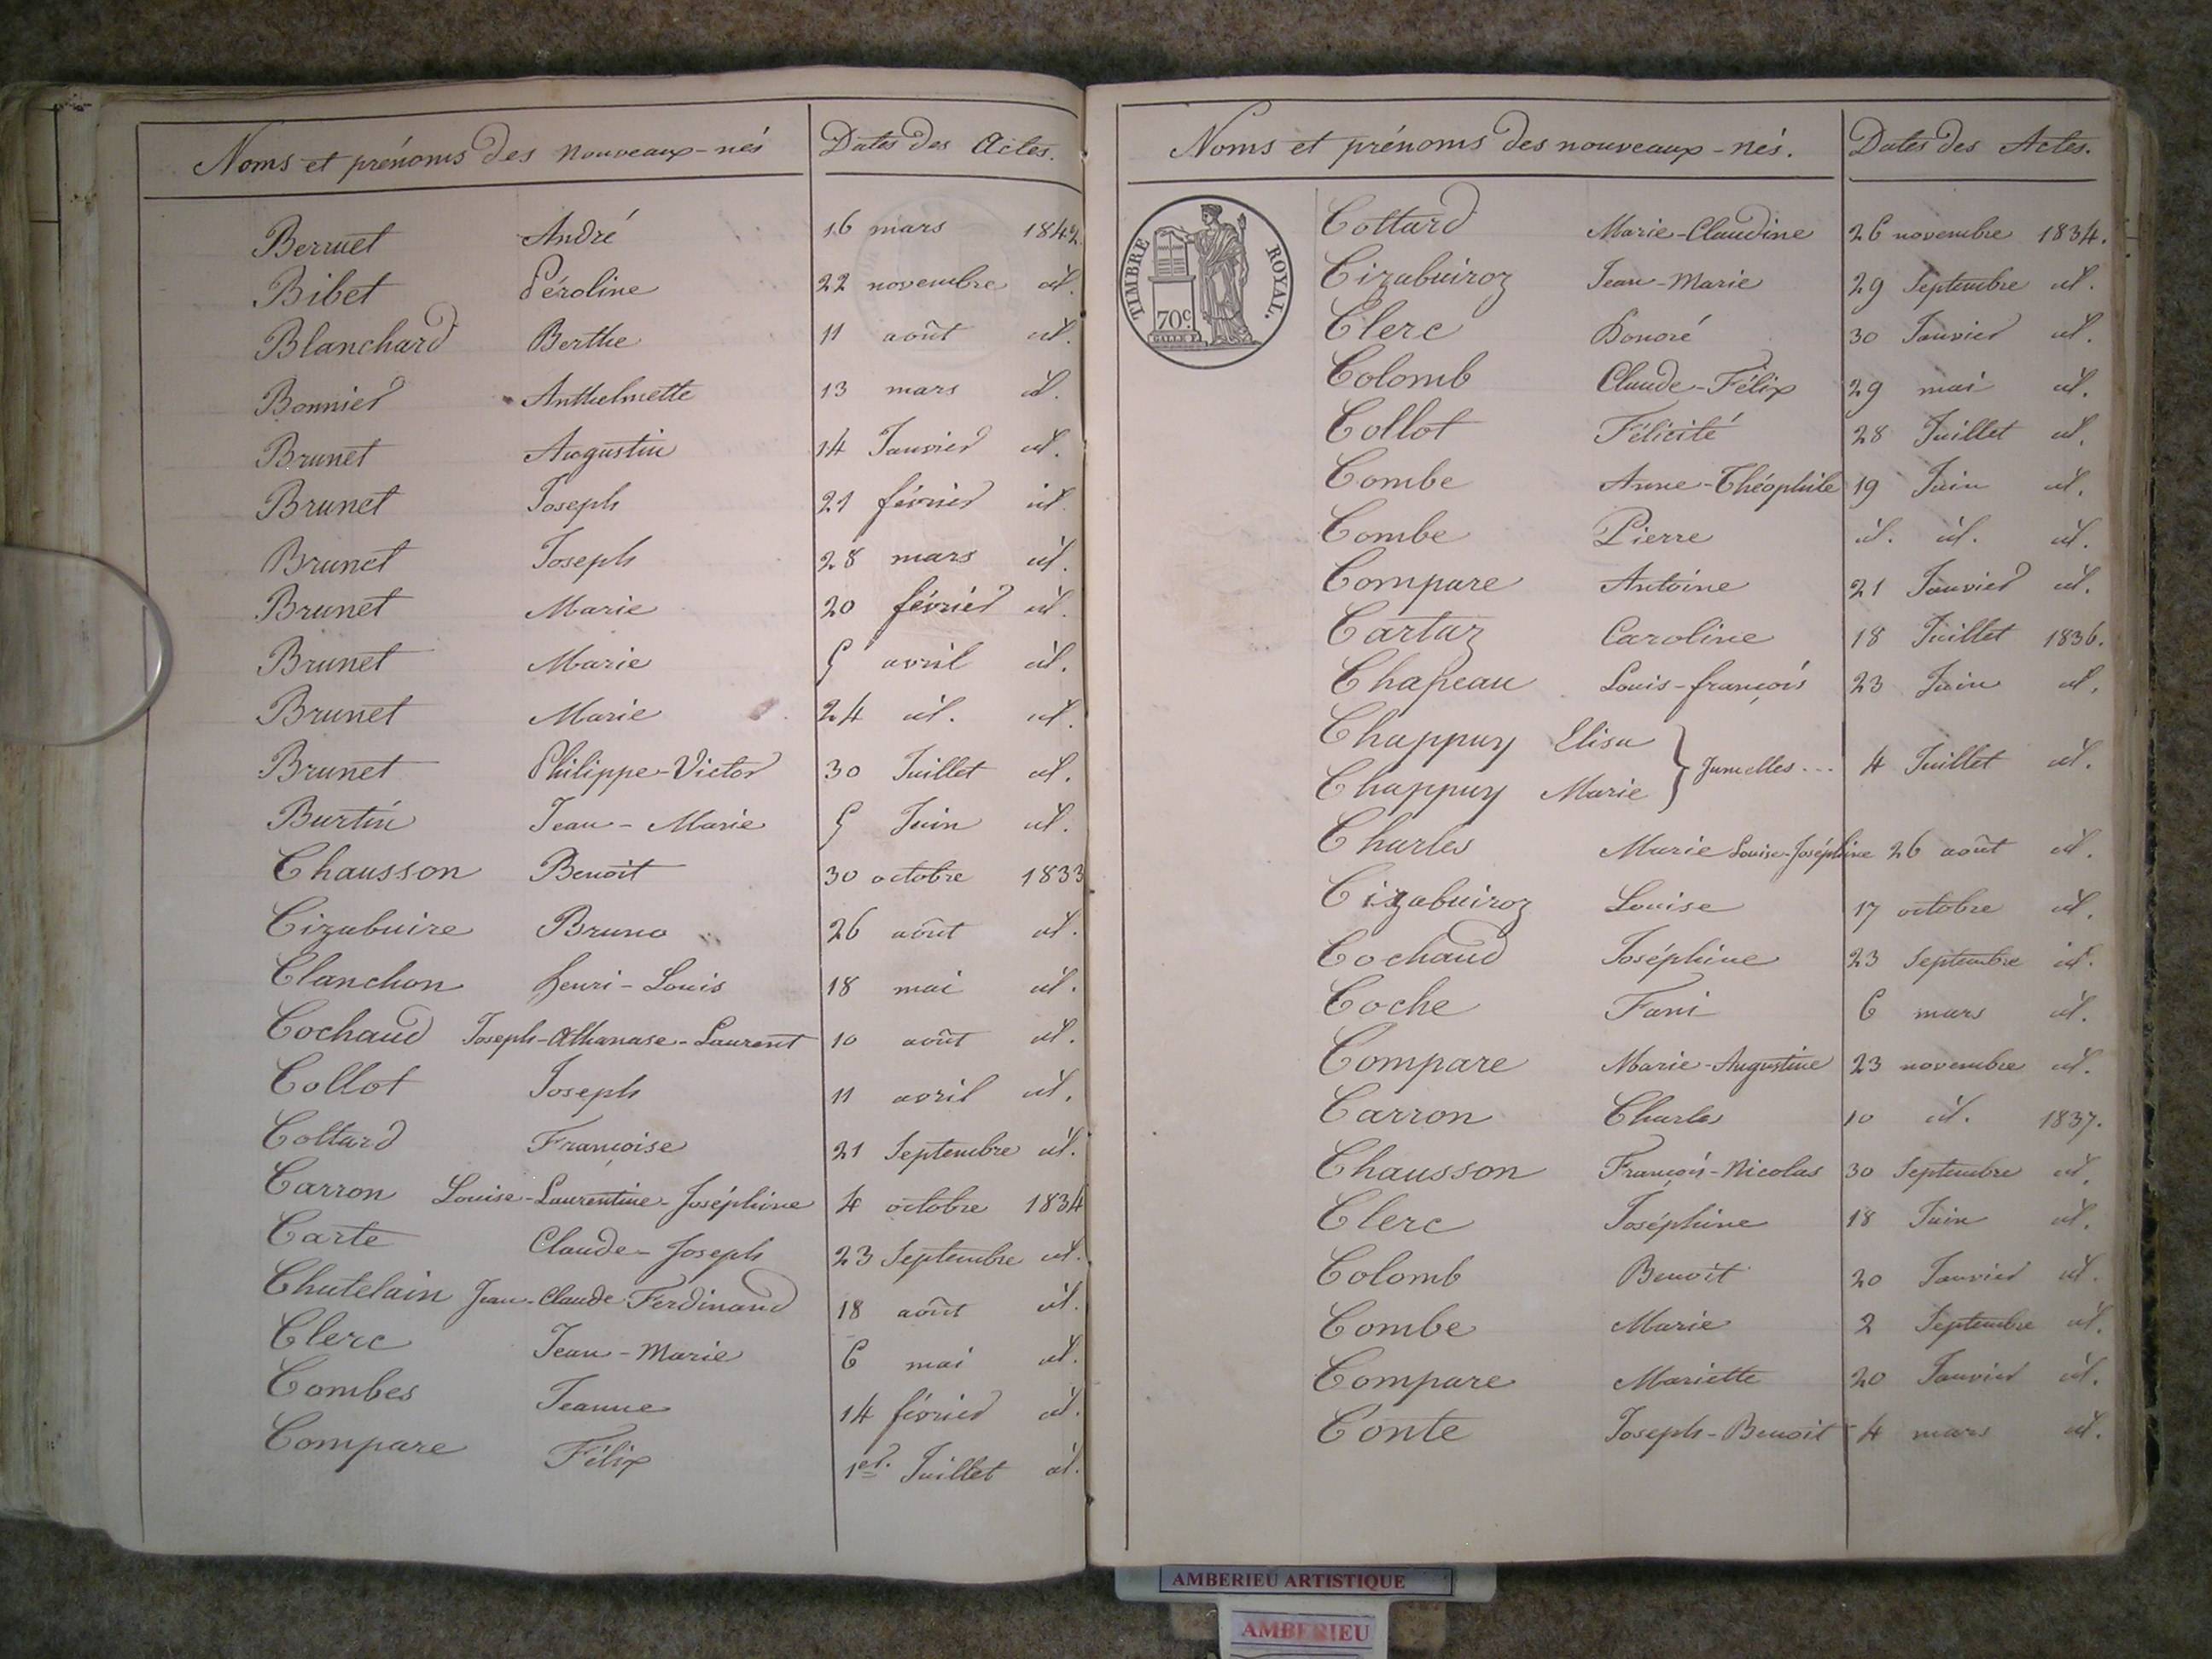 Noms et prénoms des nouveaux-nés Dates des Actes.
Berruet André 16 mars 1842.
Bibet Péroline 22 novembre id.
Blanchard Berthe 11 août id.
Bonnier Anthelmette 13 mars id.
Brunet Augustin 14 Janvier id.
Brunet Joseph 21 février id.
Brunet Joseph 28 mars id.
Brunet Marie 20 février id.
Brunet Marie 5 avril id.
Brunet Marie 24 id. id.
Brunet Philippe-Victor 30 Juillet id.
Burtin Jean-Marie 5 Juin id.
Chausson Benoit 30 octobre 1833
Cizabuire Bruno 26 août id.
Clanchon henri-Louis 18 mai id.
Cochaud Joseph-Athanase-Laurent 10 août id.
Collot Joseph 11 avril id.
Cottard Françoise 21 Septembre id.
Carron Louise-Laurentine-Joséphine 4 octobre 1834
Carte Claude-Joseph 23 Septembre id.
Chatelain Jean-Claude Ferdinand 18 août id.
Clerc Jean-Marie 6 mai id.
Combes Jeanne 14 février id.
Compare Félix 1er. Juillet id.
Noms et prénoms des nouveaux-nés. Dates des Actes.
TIMBRE ROYAL.
70c.
Cottard Marie-Claudine 26 novembre 1834.
Cizabuiroz Jean-Marie 29 Septembre id.
Clerc honoré 30 Janvier id.
Colomb Claude-Félix 29 mai id.
Collot Félicité 28 Juillet id.
Combe Anne-Théophile 19 Juin id.
Combe Pierre id. id. id.
Compare Antoine 21 Janvier id.
Cartaz Caroline 18 Juillet 1836.
Chapeau Louis-françois 23 Juin id.
Chappuy Elisa
Jumelles... 4 Juillet id.
Chappuy Marie
Charles Marie Louise-Joséphine 26 août id.
Cizabuiroz Louise 17 octobre id.
Cochaud Joséphine 23 Septembre id.
Coche Fani 6 mars id.
Compare Marie-Augustine 23 novembre id.
Carron Charles 10 id. 1837.
Chausson François-Nicolas 30 Septembre id.
Clerc Joséphine 18 Juin id.
Colomb Benoit 20 Janvier id.
Combe Marie 2 Septembre id.
Compare Mariette 20 Janvier id.
Conte Joseph-Benoit 4 mars id.
AMBERIEU ARTISTIQUE
AMBERIEU